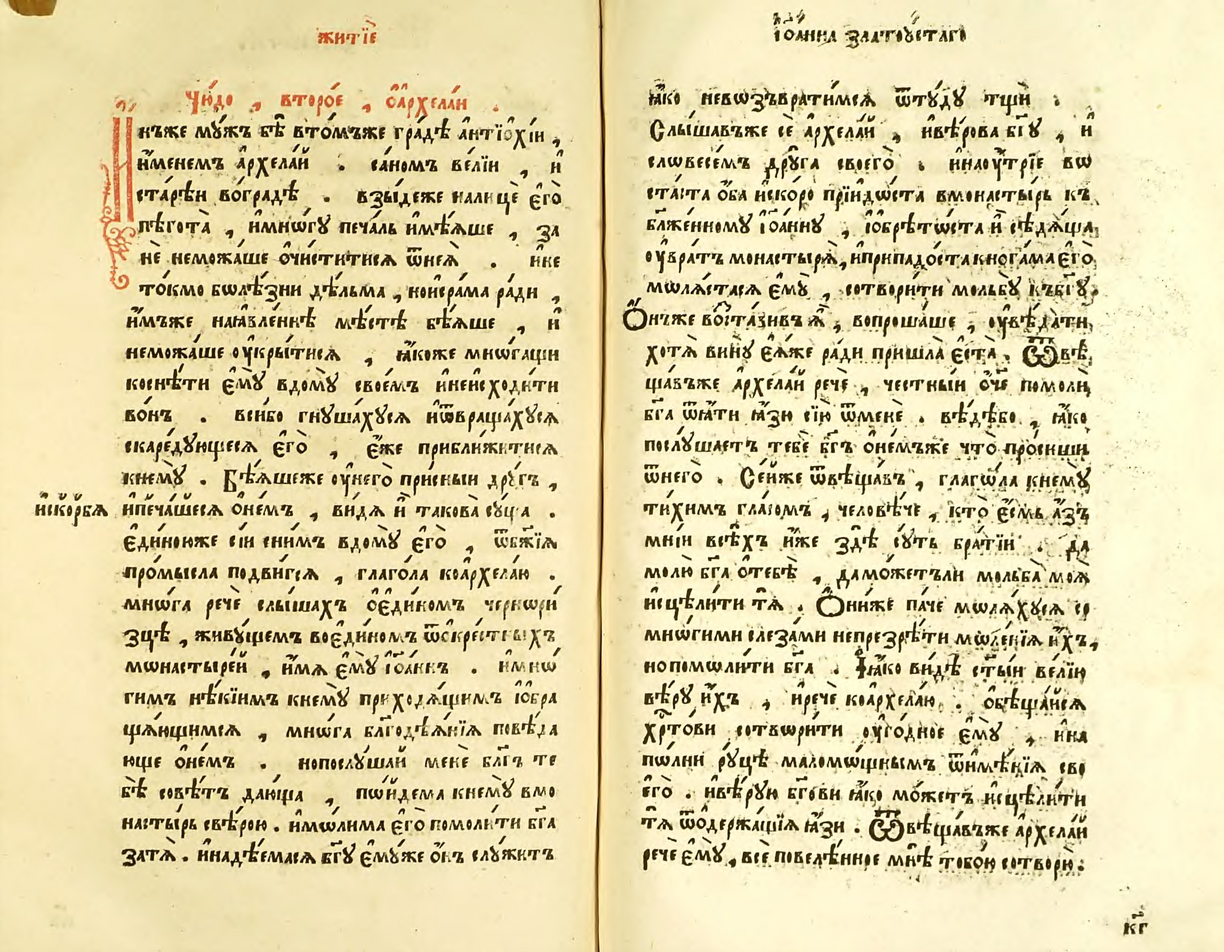 житїе
Чю́до , второ́е , ѡ҆архела́и .
И҆нъже мꙋ́жъ бѣ̀ вто́мъже гра́дѣ а҆нтїо́хїи ,
и҆́менемъ а҆рхела́й . са́номъ ве́лїи , и҆
ста́рѣи во́градѣ . взы́деже налицѐ є҆го̀
пѣ́гота , и҆мно́гꙋ печа́ль и҆мѣ́ѧше , за
нѐ немо́жаше ѡ҆чи́ститисѧ ѿнеѧ̀ . и҆не
то́кмо болѣ́зни дѣ́льма , нои҆сра́ма ра́ди ,
и҆́мъже наꙗ҆вле́ннѣ мѣ́стѣ бѣ́ѧше , и҆
немо́жаше оу҆кры́тисѧ , ꙗ҆́коже мно́гащи
коснѣ́ти є҆мꙋ̀ вдомꙋ̀ свое́мъ и҆неи҆сходи́ти
во́нъ . всѝбо гнꙋша́хꙋсѧ и҆ѿвраща́хꙋсѧ
скаре́дꙋющесѧ є҆го̀ , є҆́же прибли́житисѧ
кнемꙋ̀ . Бѣ́ѧшеже оу҆него̀ при́сныи дрꙋ́гъ ,
и҆скорбѧ̀
и҆печа́шесѧ ѡ҆не́мъ , ви́дѧ и҆̀ такова̀ сꙋ́ща .
є҆ди́ноюже сі́и сни́мъ вдомꙋ̀ є҆го̀ , ѿбж҃їѧ
про́мысла подви́гсѧ , глаго́ла коа҆рхела́ю .
мно́га речѐ слы́шахъ ѡ҆є҆ди́номъ чернори́
зцѣ , живꙋ́щемъ вое҆ди́номъ ѿѡ҆кре́стныхъ
мѡнастыре́й , и҆́мѧ є҆мꙋ̀ і҆ѡа́ннъ . и҆мно́
гимъ нѣ́кїимъ кнемꙋ̀ приходѧ́щимъ і҆ѡбра
щѧ́ющимсѧ , мно́га благодѣѧ́нїѧ повѣ́да
юще ѡ҆не́мъ . нопослꙋ́шай менѐ бл҃гъ те
бѣ̀ совѣ́тъ даю́ща , по́йдема кнемꙋ̀ вмо
насты́рь свѣ́рою . и҆мо́лима є҆го̀ помоли́ти бг҃а
затѧ̀ . и҆надѣ́емасѧ бг҃ꙋ є҆мꙋ́же ѻ҆́нъ слꙋ́житъ
і҆ѡа́нна златоꙋ́стаго
ꙗ҆́ко невозъврати́мсѧ ѿтꙋ́дꙋ тщѝ .
Слы́шавъже сѐ а҆рхела́й , и҆вѣ́рова бг҃ꙋ , и҆
словесе́мъ дрꙋ́га своего̀ . и҆наоу҆́трїе во
ста́ста ѻ҆́ба и҆ско́ро прїидо́ста вмонасты́рь къ
бл҃же́нномꙋ і҆ѡа́ннꙋ , і҆ѡбрѣто́ста и҆̀ сѣдѧ́ща
оу҆вра́тъ монастырѧ̀ , и҆припадо́ста кнога́ма є҆го̀
молѧ́стасѧ є҆мꙋ̀ , сотвори́ти мольбꙋ̀ къбг҃ꙋ .
Ѻ҆́нъже возста́вивъ ѧ҆̀ , вопроша́ше , оу҆вѣ́дати
хотѧ̀ винꙋ̀ є҆ѧ́же ра́ди пришла̀ є҆ста̀ . Ѿвѣ
ща́въже а҆рхела́й речѐ , честны́и ѻ҆́ч҃е помолѝ
бг҃а ѿѧ́ти ꙗ҆́зꙋ сїю̀ ѿменѐ . вѣ́дѣбо , ꙗ҆́ко
послꙋ́шаетъ тебѐ бг҃ъ ѡ҆не́мъже что̀ про́сиши
ѿнего̀ . Се́йже ѿвѣща́въ , глаго́ла кнемꙋ̀
ти́химъ гла́сомъ , человѣ́че , кто̀ є҆́смь а҆́зъ
мні́и всѣ́хъ и҆̀же здѣ̀ сꙋ́ть бра́тїи . да
молю̀ бг҃а ѡ҆тебѣ̀ , дамо́жетъли мольба̀ моѧ̀
и҆сцѣли́ти тѧ̀ . Ѻ҆ни́же па́че молѧ́хꙋсѧ со
мно́гими слеза́ми непрезрѣ́ти моле́нїѧ и҆́хъ ,
нопомоли́ти бг҃а . Ꙗ҆́ко ви́дѣ ст҃ы́и ве́лїю
вѣ́рꙋ и҆́хъ , и҆речѐ коа҆рхела́ю . ѡ҆бѣща́йсѧ
хрⷭ҇то́ви сотвори́ти оу҆го́дное є҆мꙋ̀ , и҆на
по́лни рꙋ́цѣ маломо́щнымъ ѿи҆мѣ́нїѧ сво
его̀ . и҆вѣ́рꙋи бг҃ови ꙗ҆́ко мо́жетъ и҆сцѣли́ти
тѧ̀ ѿѡ҆держа́щїѧ ꙗ҆́зи . Ѿвѣща́въже а҆рхела́й
речѐ є҆мꙋ̀ , всѐ повелѣ́нное мнѣ̀ тобо́ю сотворю̀ .
к҃г